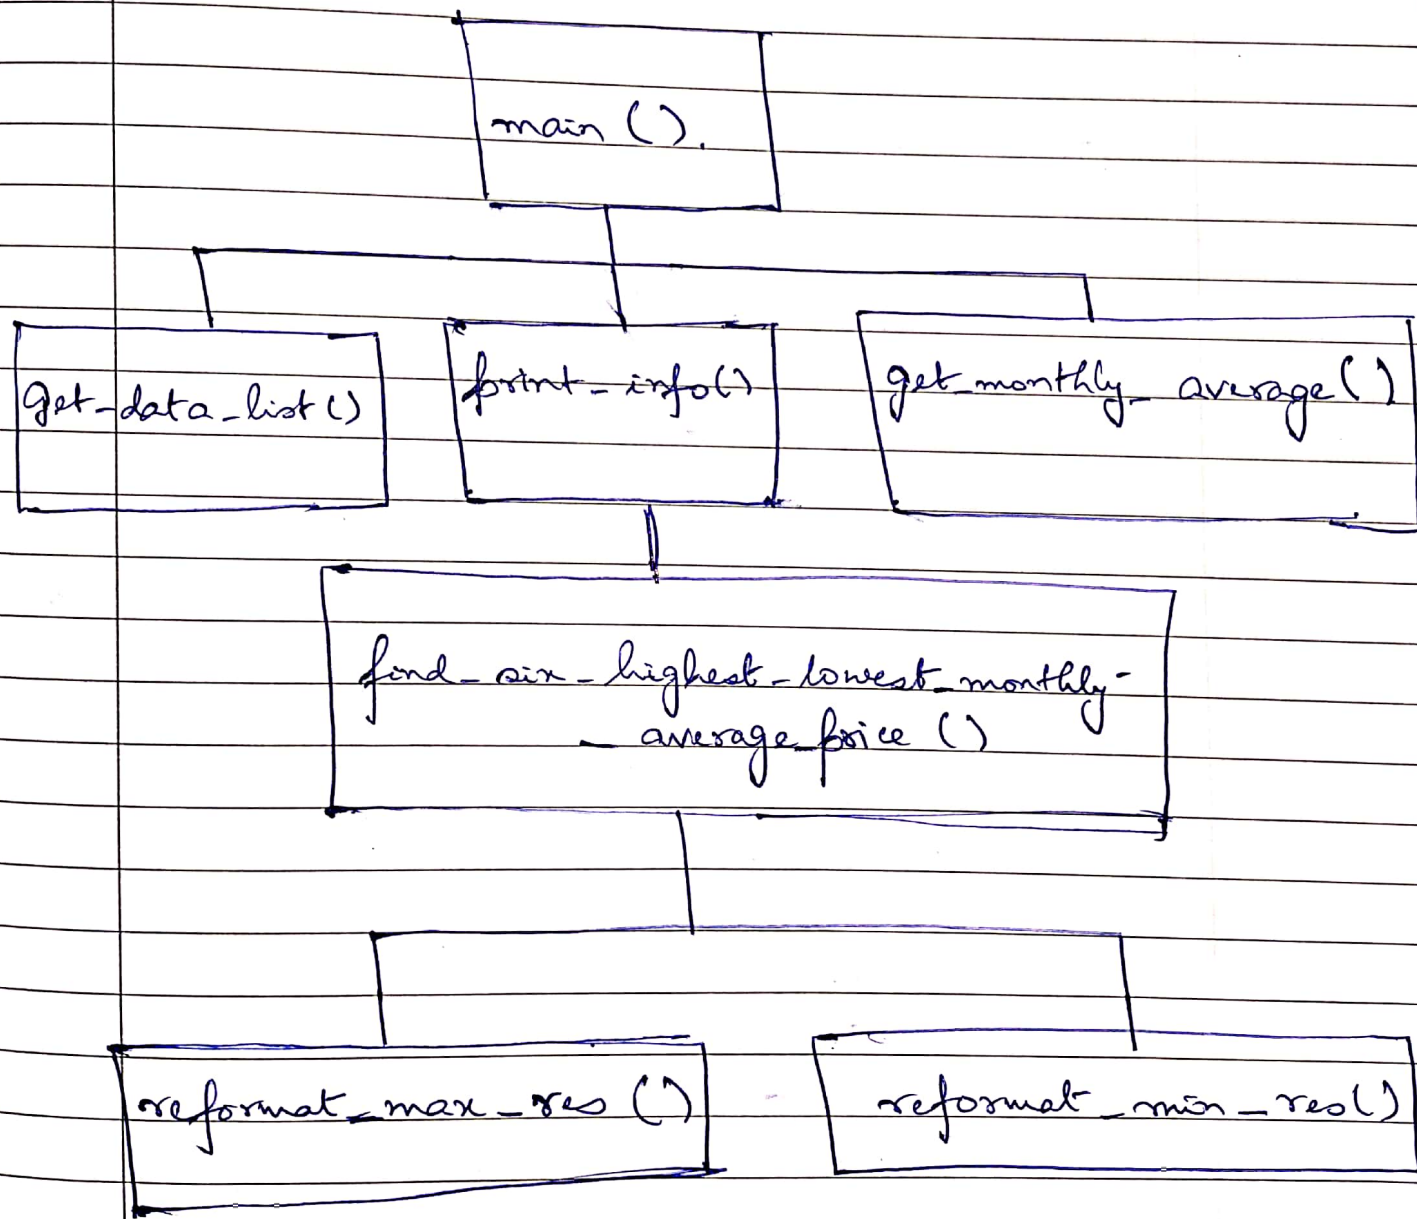 main ().
get_data_list()
print_info()
get_monthly_average()
find_six_highest_lowest_monthly-
_average_price ()
reformat_max_res ()
reformat_min_res()